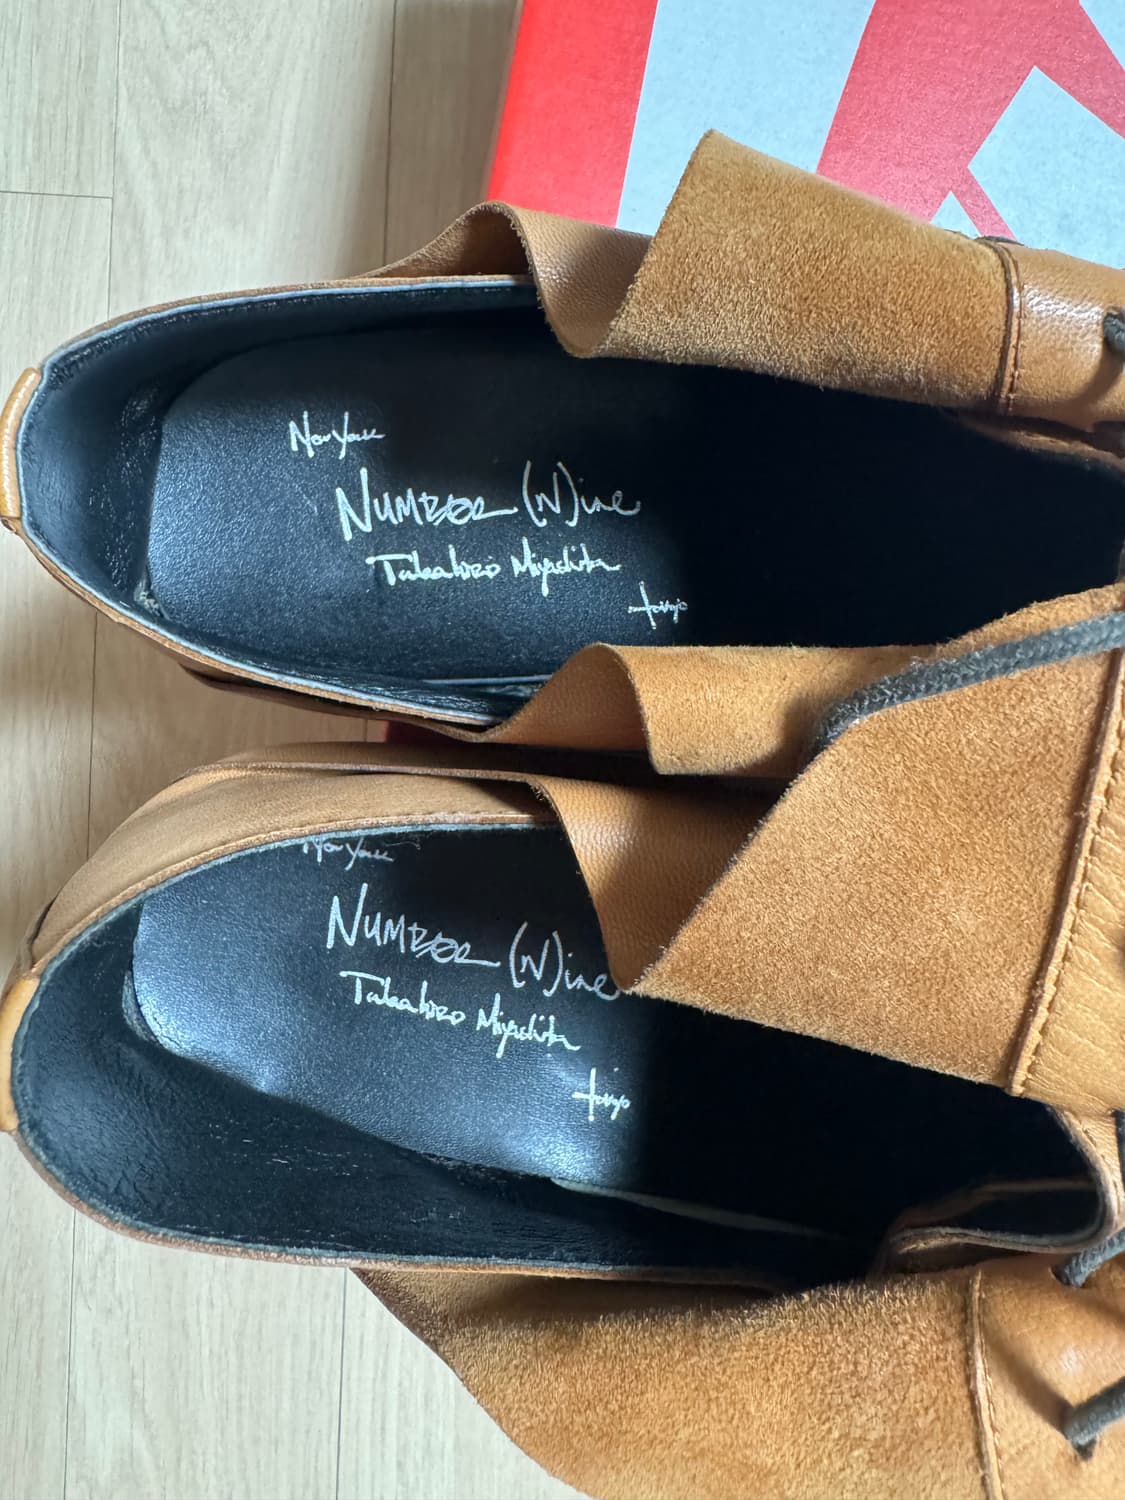 New York
NUMBER (N)ine
Takahiro Miyashita
tokyo
New York
NUMBER (N)ine
Takahiro Miyashita
tokyo